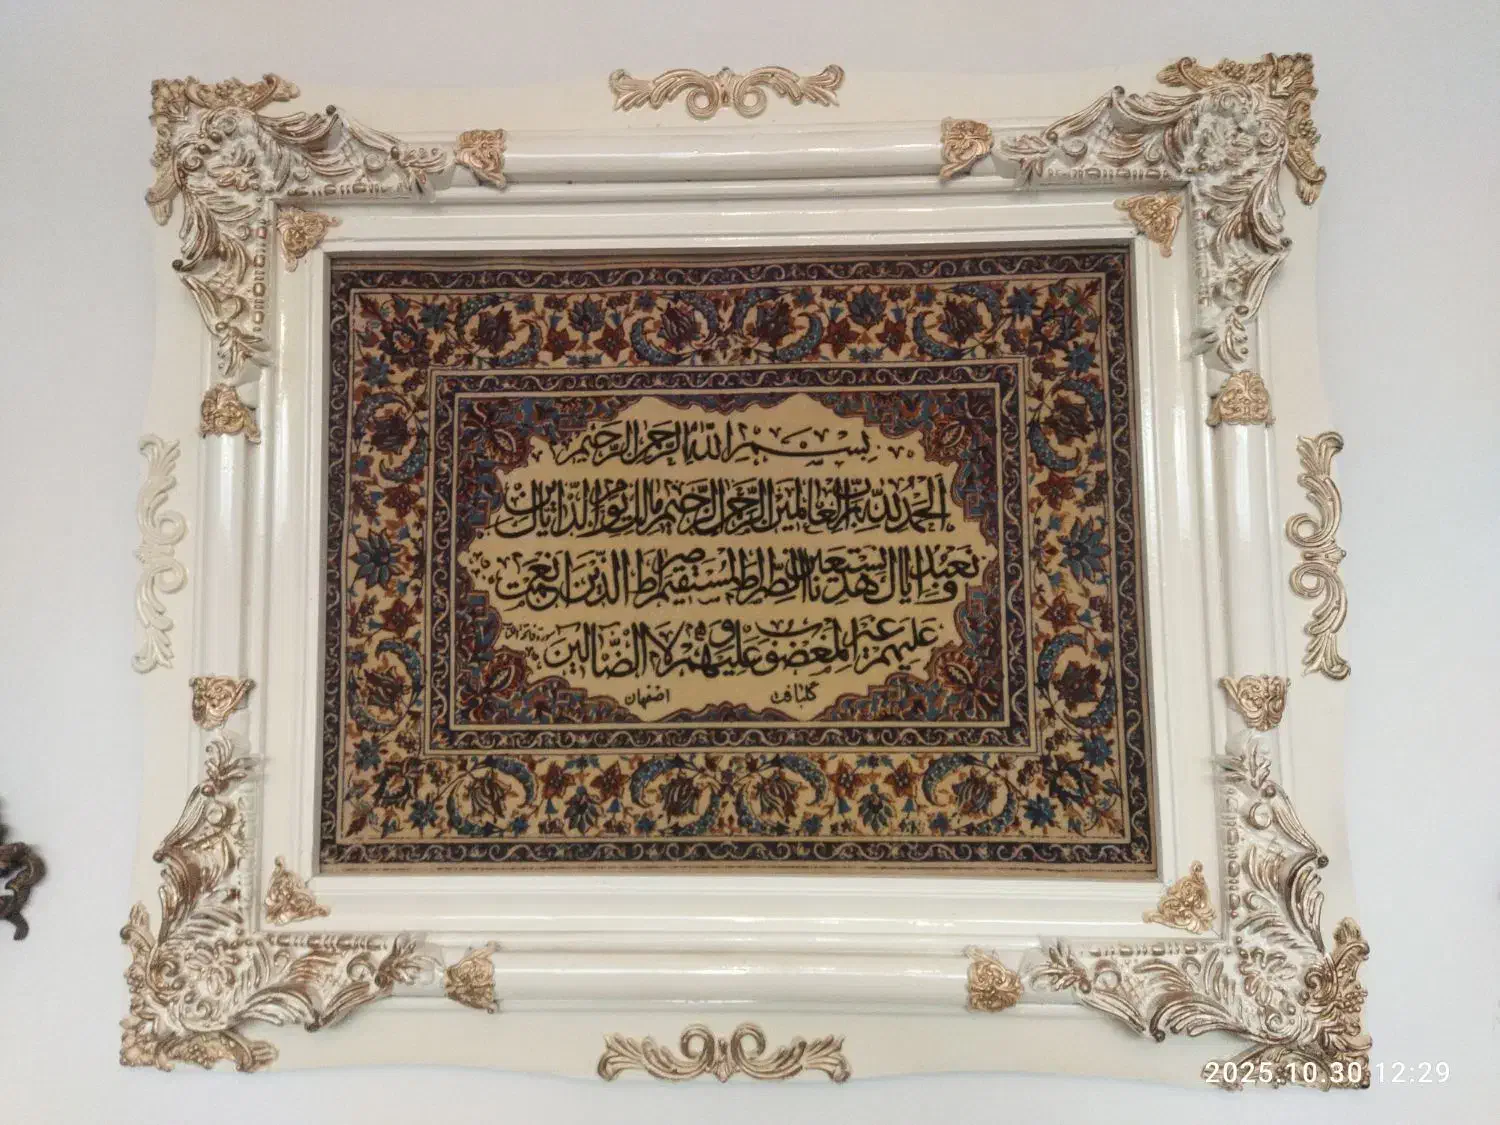 بسم الله الرحمن الرحیم
الحمد لله رب العالمین الرحمن الرحیم مالک یوم الدین ایاک
نعبد و ایاک نستعین اهدنا الصراط المستقیم صراط الذین انعمت
علیهم غیر المغضوب علیهم و لا الضالین سورة فاتحة
گلبافت اصفهان
2025.10.30 12:29